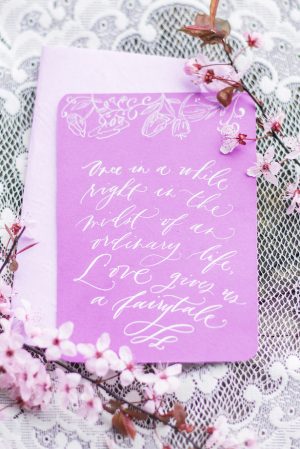 Once in a while
right in the
midst of an
ordinary life,
Love gives us
a fairytale